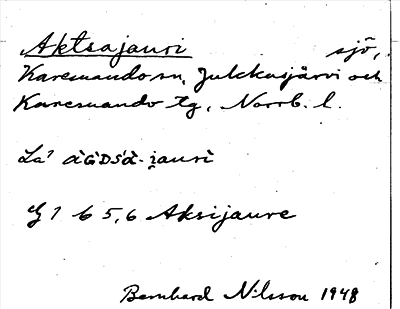 Aktsajauri sjö,
Karesuando sn, Jukkasjärvi och
Karesuando tg, Norrb. l.
La' àGDSà-i̯auri
G 1 b 5,6 Aksijaure
Bernhard Nilsson 1948